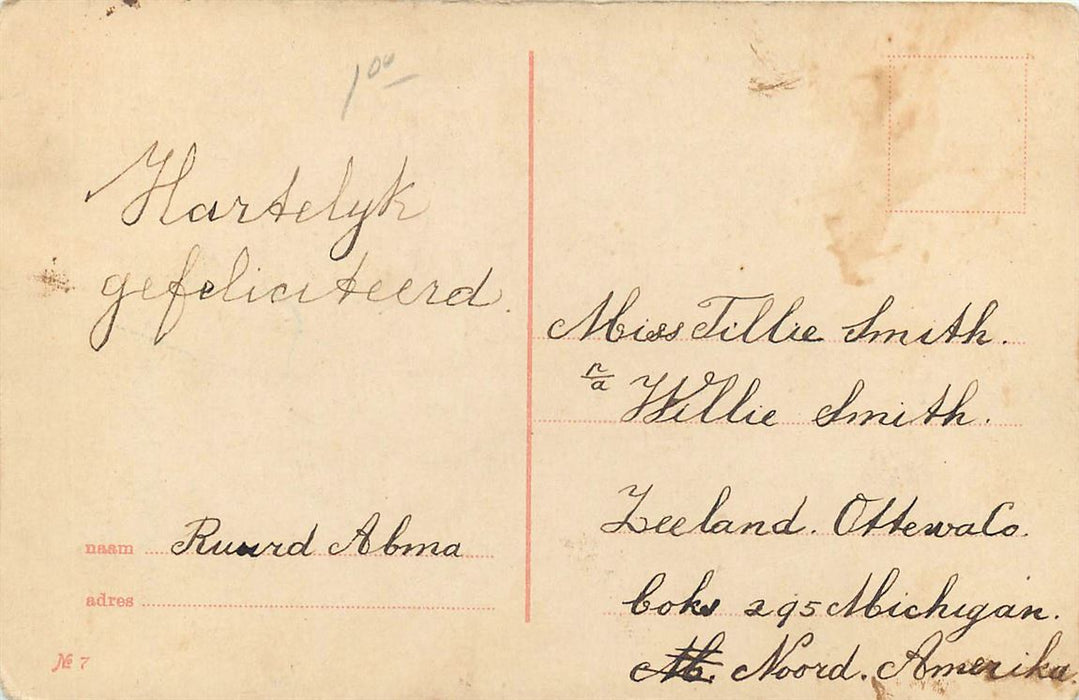 1 00
Hartelyk
gefeliciteerd.
naam Ruurd Abma
adres
№ 7
Miss Tillie Smith.
n/a Willie Smith.
Zeeland. OttewaCo.
boks 295 Michigan.
M. Noord. Amerika.